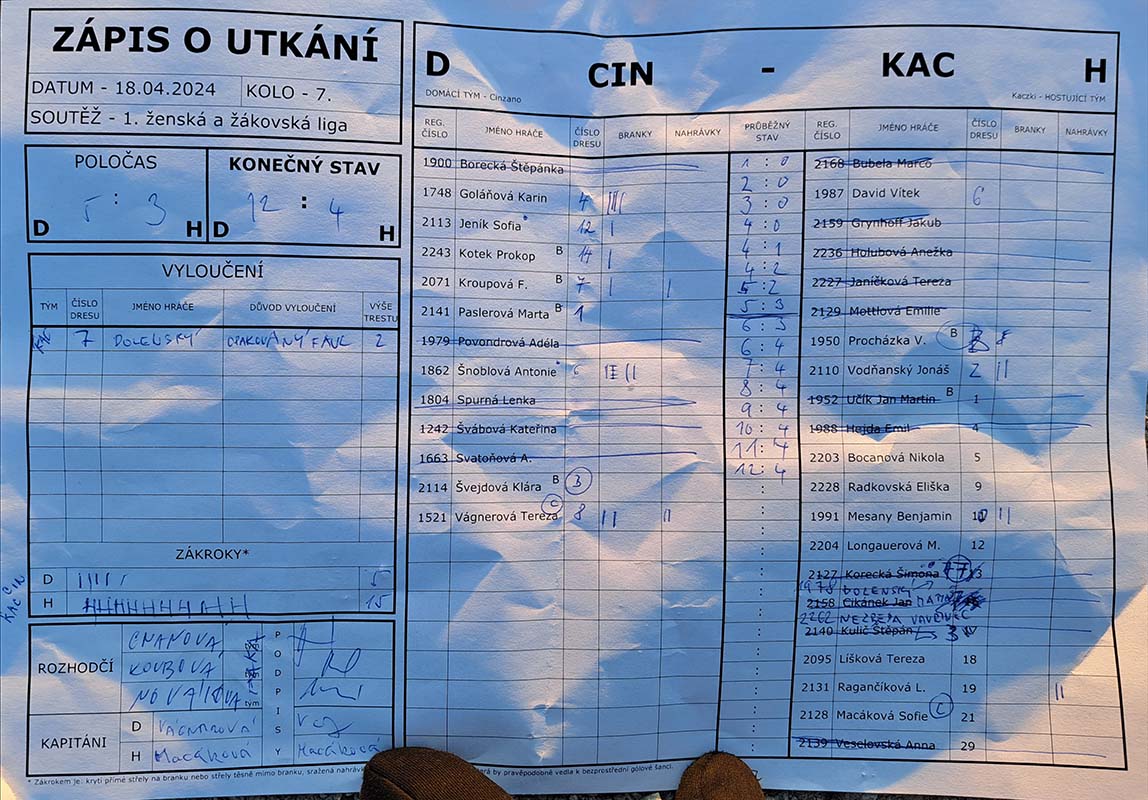 ZÁPIS O UTKÁNÍ
DATUM - 18.04.2024 KOLO - 7.
SOUTĚŽ - 1. ženská a žákovská liga
POLOČAS KONEČNÝ STAV
D 5 : 3 H D 12 : 4 H
VYLOUČENÍ
TÝM ČÍSLO DRESU JMÉNO HRÁČE DŮVOD VYLOUČENÍ VÝŠE TRESTU
KAC 7 DOLENSKÝ OPAKOVANÝ FAUL 2
ZÁKROKY*
D 5
H 15
CIN
KAC
ROZHODČÍ
KOUBOVA
NOVAKOVA
tým
PODPISY
KAPITÁNI
D
H Macáková Macáková
* Zákrokem je: krytí přímé střely na branku nebo střely těsně mimo branku, sražená
by pravěpodobně vedla k bezprostřední gólové šanci.
D CIN - KAC H
DOMÁCÍ TÝM - Cinzano Kaczki - HOSTUJÍCÍ TÝM
REG. ČÍSLO JMÉNO HRÁČE ČÍSLO DRESU BRANKY NAHRÁVKY
1900 Borecká Štěpánka
1748 Goláňová Karin 4
2113 Jeník Sofia 12 I
2243 Kotek Prokop B 14 I
2071 Kroupová F. B 7 I I
2141 Paslerová Marta B 1
1979 Povondrová Adéla
1862 Šnoblová Antonie 6
1804 Spurná Lenka
1242 Švábová Kateřina
1663 Svatoňová A.
2114 Švejdová Klára B B
1521 Vágnerová Tereza C 8 II II
PRŮBĚŽNÝ STAV
1 : 0
2 : 0
3 : 0
4 : 0
4 : 1
4 : 2
5 : 2
5 : 3
6 : 3
6 : 4
7 : 4
8 : 4
9 : 4
10 : 4
11 : 4
12 : 4
REG. ČÍSLO JMÉNO HRÁČE ČÍSLO DRESU BRANKY NAHRÁVKY
2168 Bubela Marco
1987 David Vítek 6
2159 Grynhoff Jakub
2236 Holubová Anežka
2227 Janíčková Tereza
2129 Mottlová Emilie
1950 Procházka V. B 8
2110 Vodňanský Jonáš 2 II
1952 Učík Jan Martin B 1
1988 Hejda Emil 4
2203 Bocanová Nikola 5
2228 Radkovská Eliška 9
1991 Mesany Benjamin 10 II
2204 Longauerová M. 12
2127 Korecká Šimona
1978 DOLENSKÝ
2158 Cikánek Jan
2262
2140 Kulič Štěpán
2095 Líšková Tereza 18
2131 Ragančíková L. 19 II
2128 Macáková Sofie C 21
2139 Veselovská Anna 29